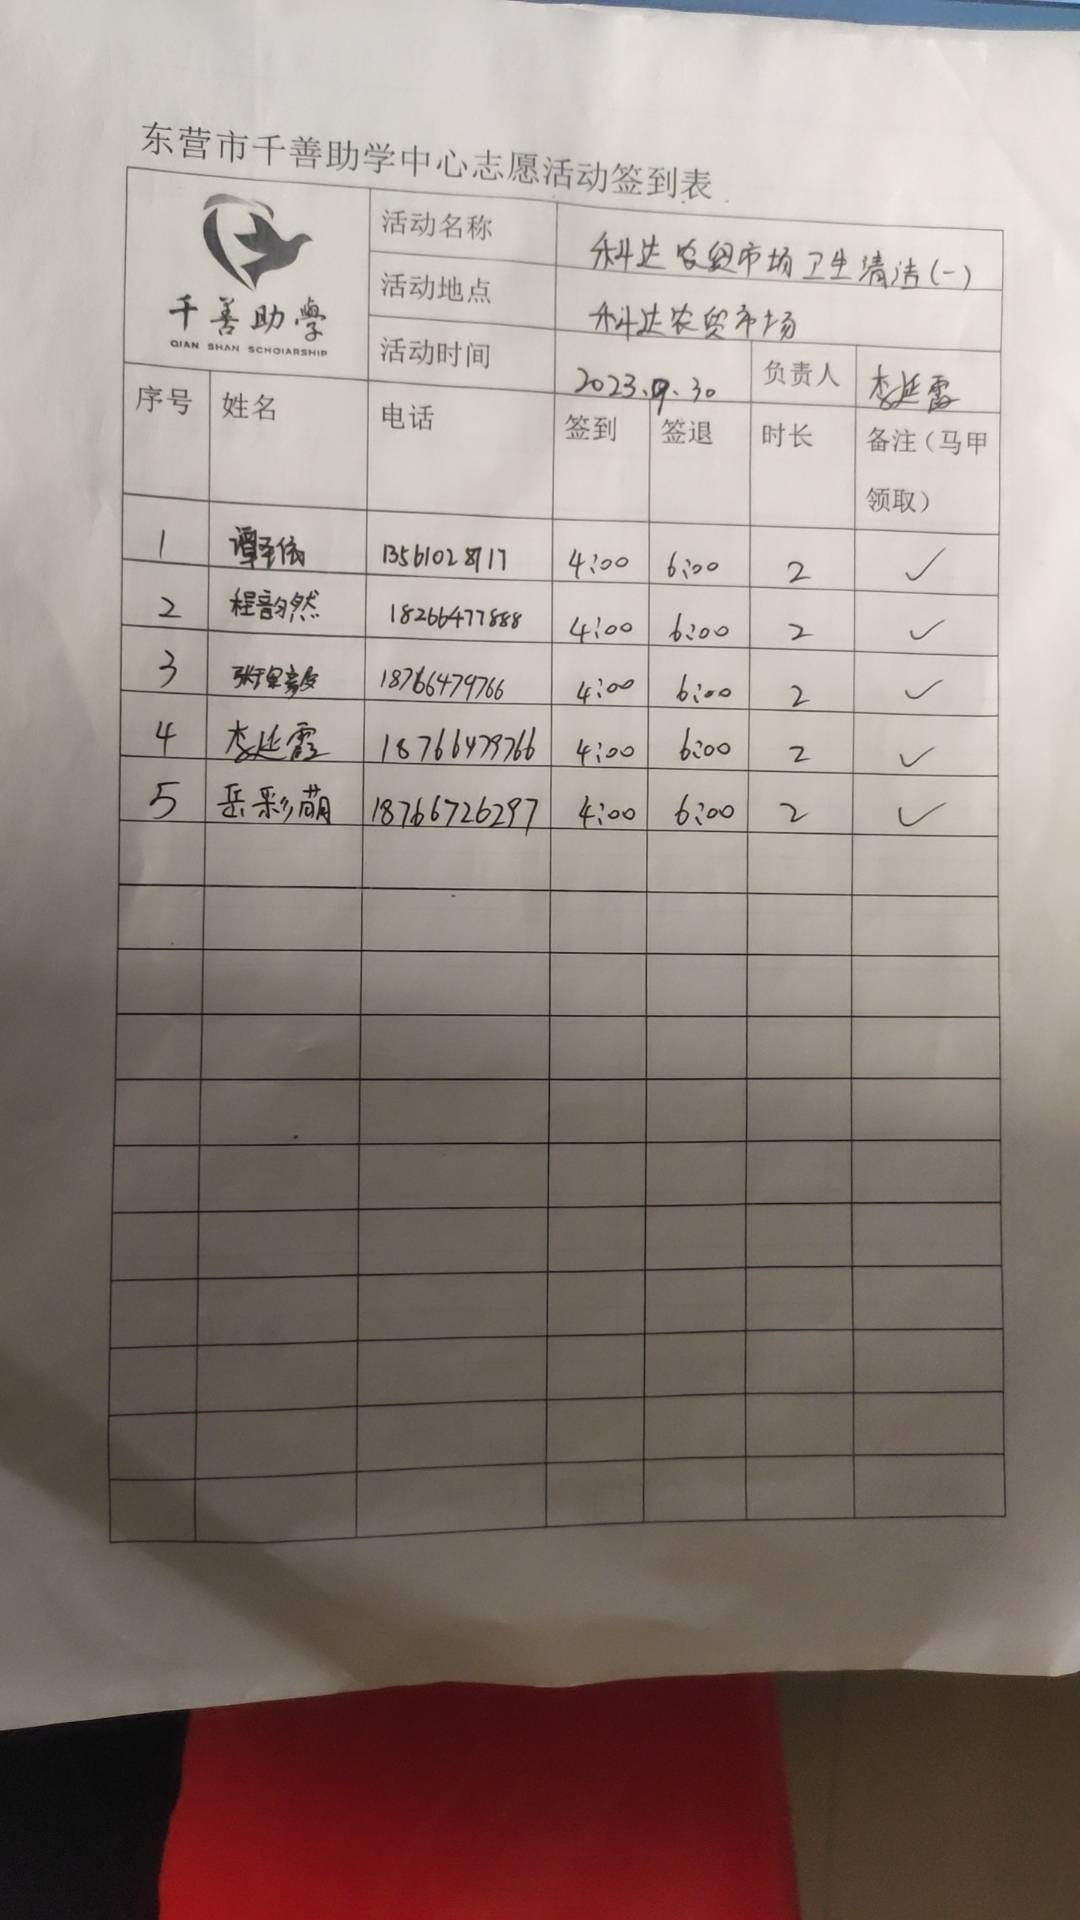 东营市千善助学中心志愿活动签到表
千善助學
QIAN SHAN SCHOIARSHIP
活动名称 科达农贸市场卫生清洁(一)
活动地点 科达农贸市场
活动时间 2023.9.30 负责人 李延霞
序号 姓名 电话 签到 签退 时长 备注（马甲
领取）
1 4:00 6:00 2 ✓
2 程韵然 18266477888 4:00 6:00 2 ✓
3 18766479766 4:00 6:00 2 ✓
4 李延霞 18766479766 4:00 6:00 2 ✓
5 岳彩萌 18766726297 4:00 6:00 2 ✓